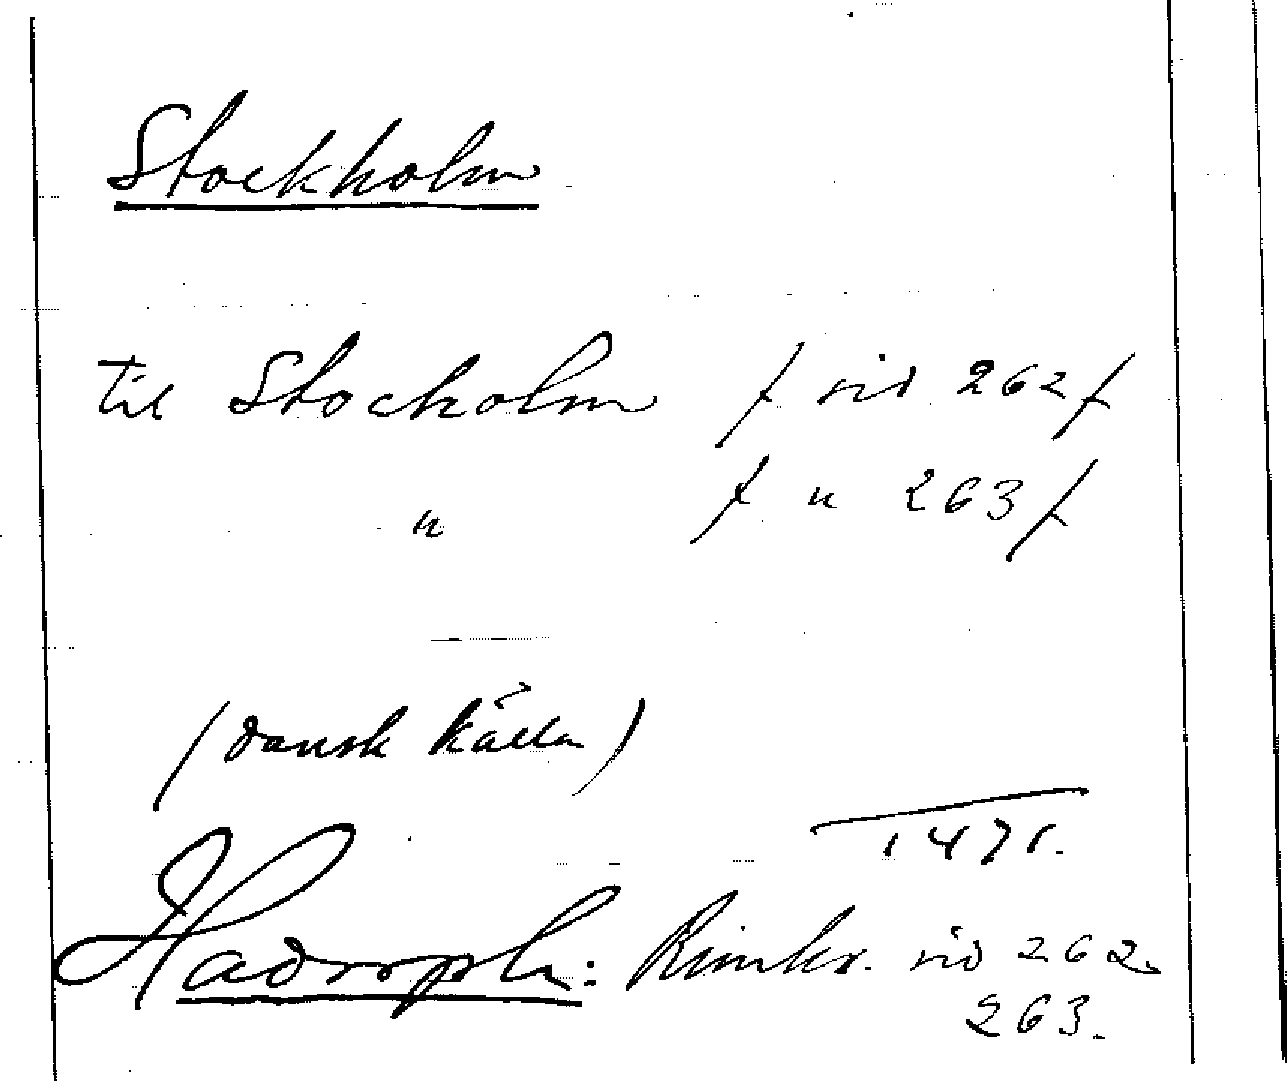 Stockholm
til Stocholm / sid 262 /
" / " 263 /
(dansk källa)
1471.
Hadorph: Rimkr. sid 262.
263.